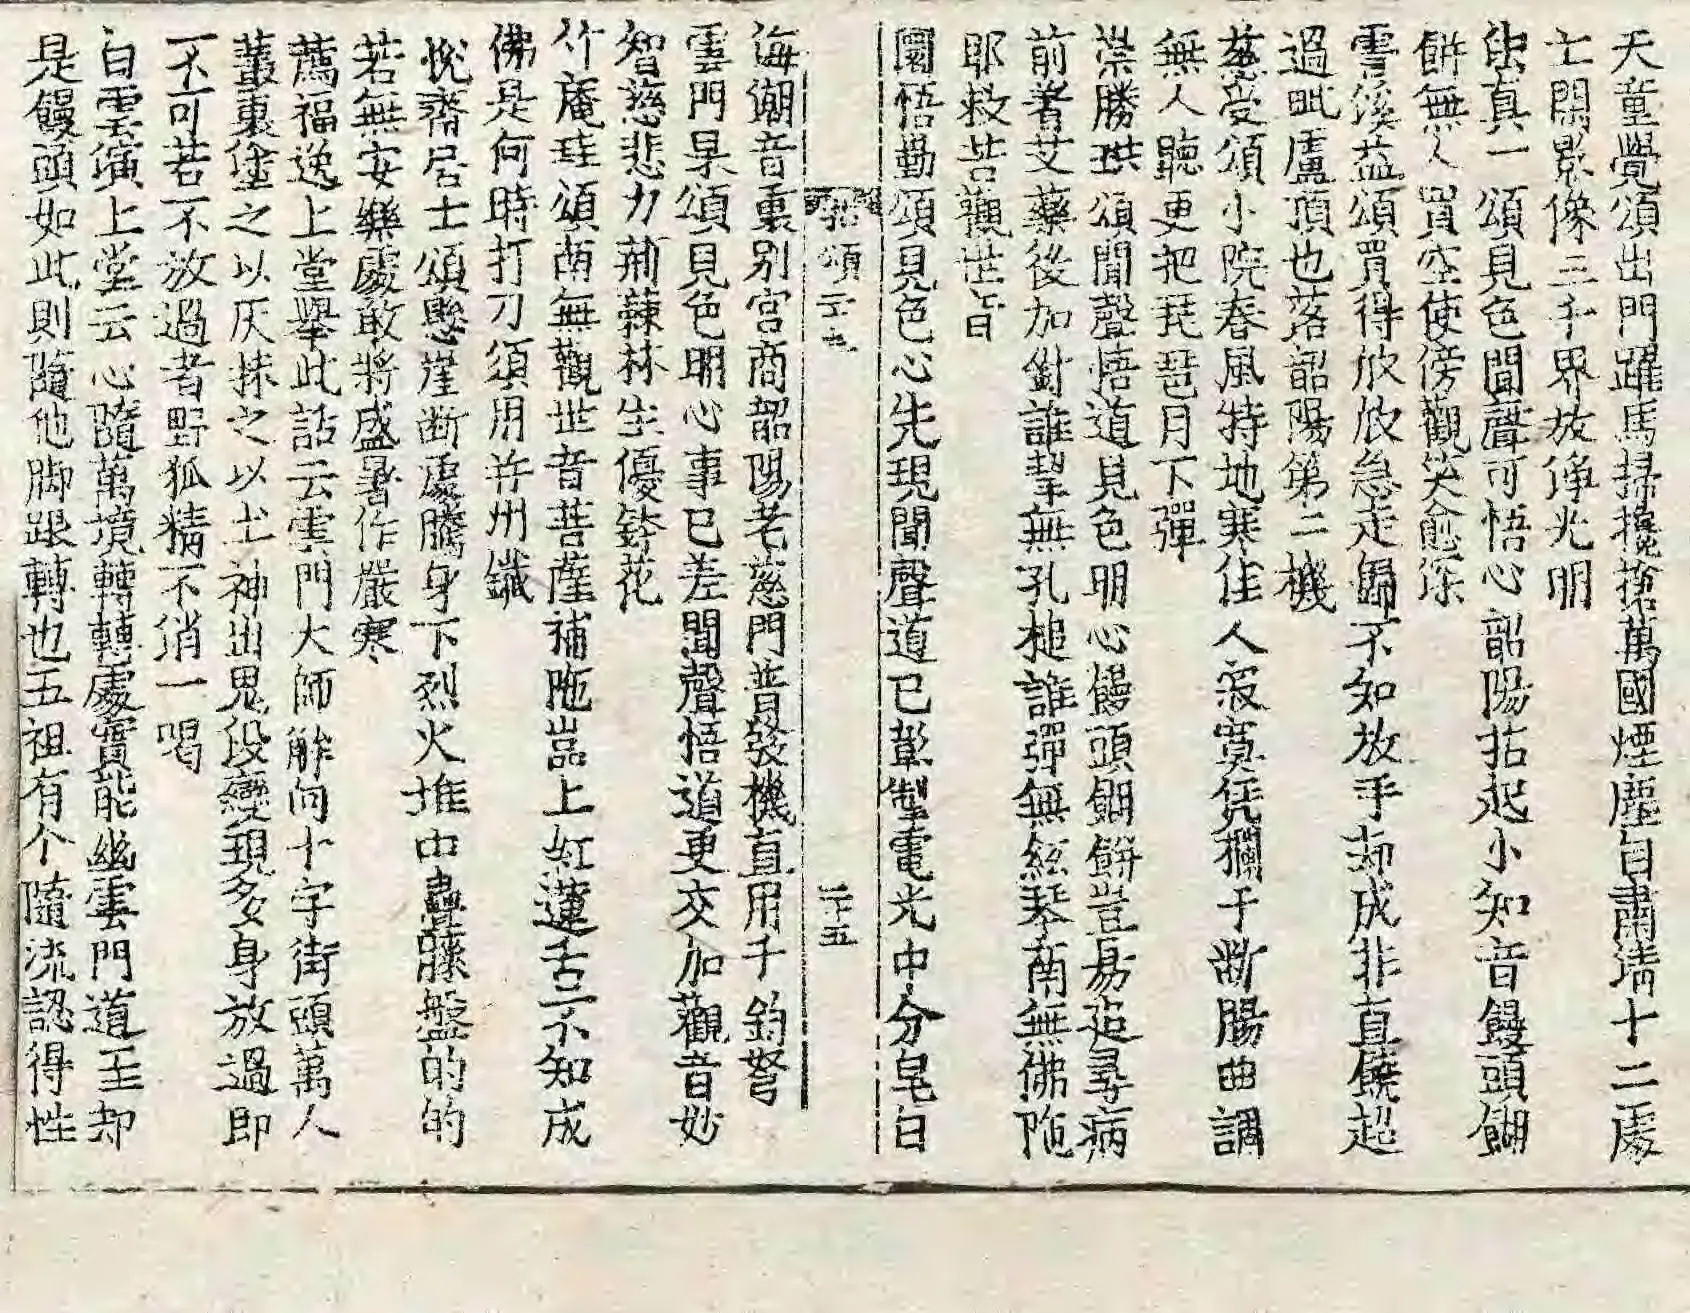 天童覺頌出門躍馬掃攙搶萬國煙塵自肅清十二處
亡閑影像三千界放淨光明
佛真一頌見色聞聲可悟心韶陽拈起小知音饅頭餬
餅無人買空使傍觀笑愈深
雪溪益頌買得欣欣急走歸不知放手却成非直饒超
過毗盧頂也落韶陽第二機
慈受頌小院春風特地寒佳人寂寞凭欄干斷腸曲調
無人聽更把琵琶月下彈
崇勝珙頌聞聲悟道見色明心饅頭餬餅豈易追尋病
前著艾藥後加針誰挈無孔槌誰彈無絃琴南無佛陁
耶救苦觀世音
圜悟勤頌見色心先現聞聲道已彰掣電光中分皂白
拈頌二十七
二十五
海潮音裏別宮商韶陽老慈門普發機直用千鈞弩
雲門杲頌見色明心事已差聞聲悟道更交加觀音妙
智慈悲力荊棘林生優鉢花
竹庵珪頌南無觀世音菩薩補陁嵓上紅蓮舌不知成
佛是何時打刀須用并州鐵
悅齋居士頌懸崖斷處騰身下烈火堆中疊藤盤的的
若無安樂處敢將盛暑作嚴寒
薦福逸上堂擧此話云雲門大師能向十字街頭萬人
叢裏塗之以灰抹之以土神出鬼段變現多身放過即
不可若不放過者野狐精不消一喝
白雲演上堂云心隨萬境轉轉處實能幽雲門道王却
是饅頭如此則隨他脚跟轉也五祖有个隨流認得性